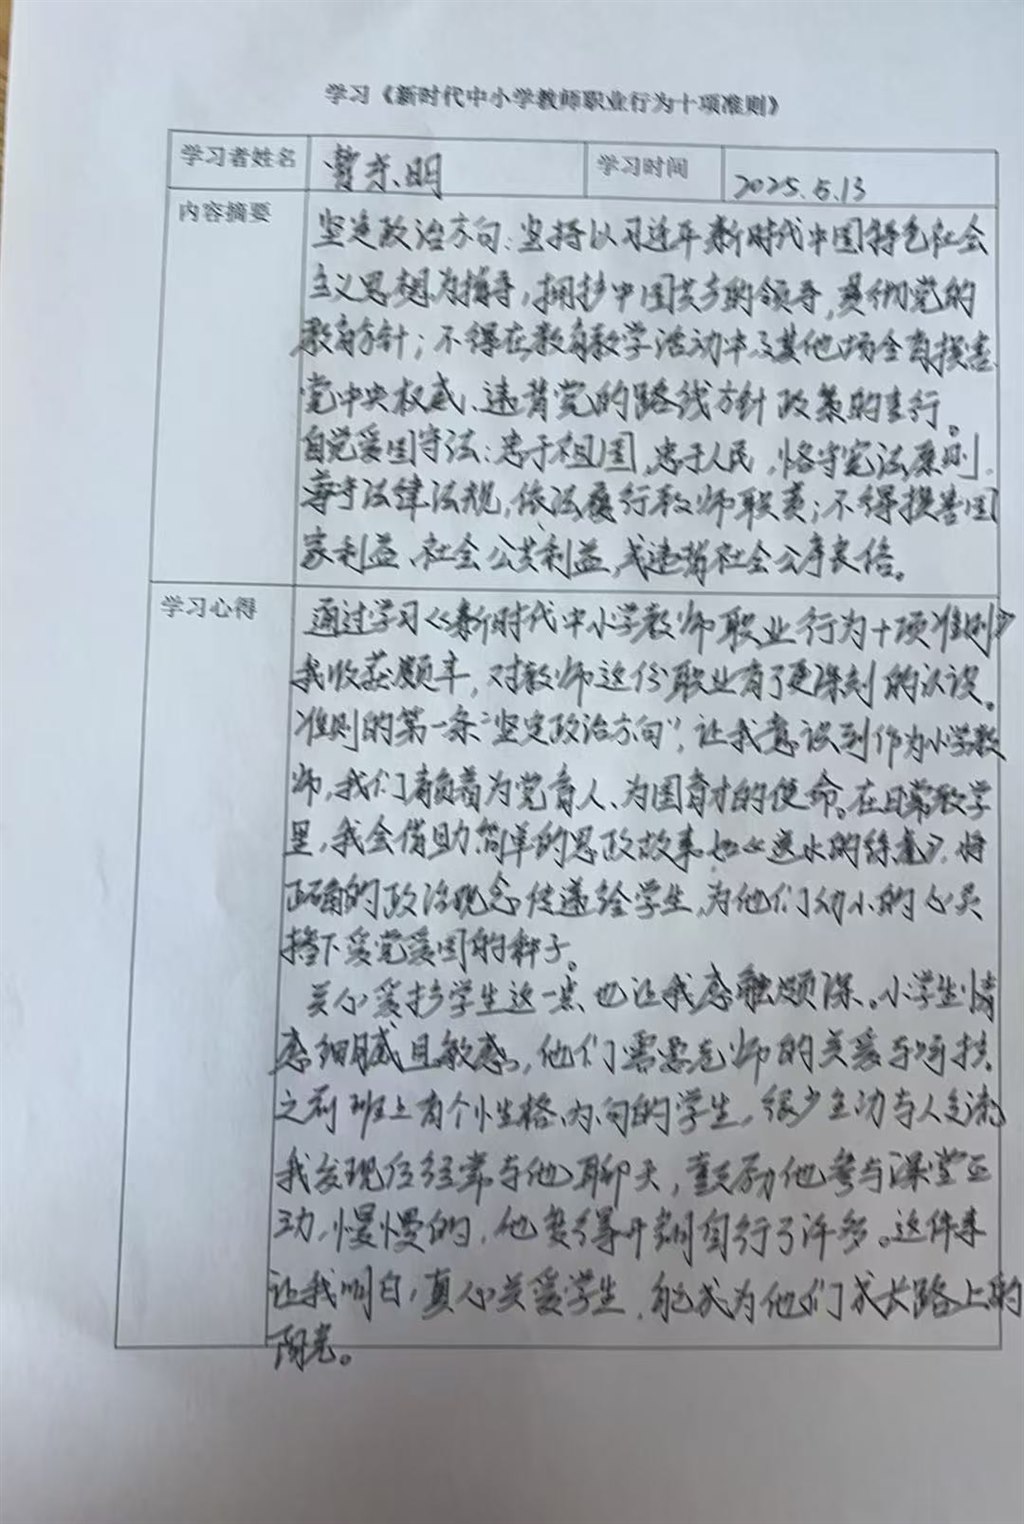 学习《新时代中小学教师职业行为十项准则》
学习者姓名
学习时间
2025.5.13
内容摘要
坚定政治方向：坚持以习近平新时代中国特色社会
主义思想为指导，拥护中国共产党的领导，贯彻党的
教育方针；不得在教育教学活动中及其他场合有损害
党中央权威、违背党的路线方针政策的言行。
自觉爱国守法：忠于祖国，忠于人民，恪守宪法原则，
遵守法律法规，依法履行教师职责；不得损害国
家利益、社会公共利益，或违背社会公序良俗。
学习心得
通过学习《新时代中小学教师职业行为十项准则》
我收获颇丰，对教师这份职业有了更深刻的认识。
准则的第一条“坚定政治方向”，让我意识到作为小学教
师，我们肩负着为党育人、为国育才的使命。在日常教学
里，我会借助简单的思政故事，如《　水的　　》，将
正确的政治观念传递给学生，为他们幼小的心灵
播下爱党爱国的种子。
关心爱护学生这一点也让我感触颇深。小学生情
感细腻且敏感，他们需要老师的关爱与呵护。
之前班上有个性格内向的学生，很少主动与人交流
我发现后经常与他聊天，鼓励他参与课堂互
动，慢慢的，他变得开朗自信了许多。这件事
让我明白，真心关爱学生，能成为他们成长路上的
阳光。